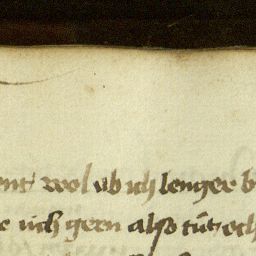 ent wol ub ich lenger b
e üch gern also tůt ech